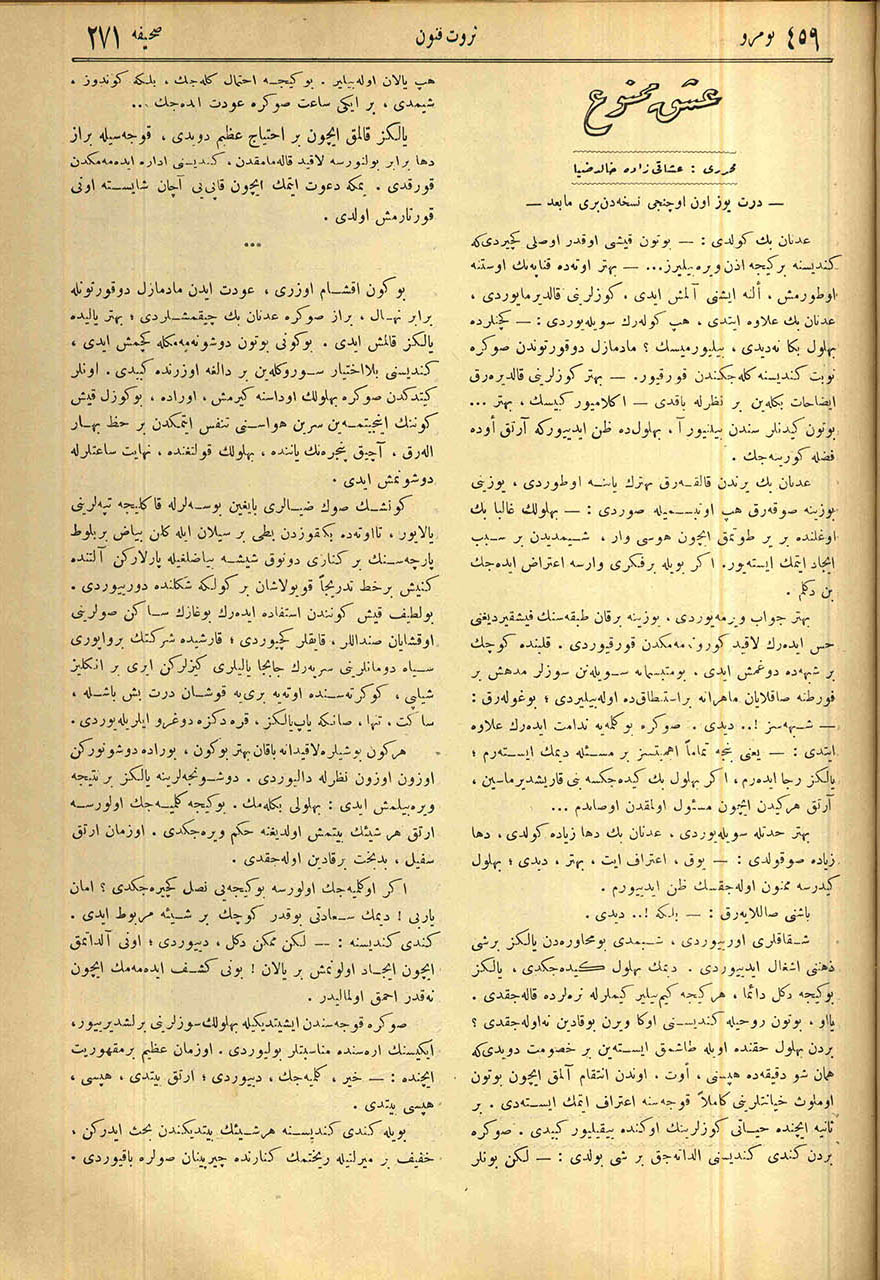 نومرو ٤٥٩
ثروت فنون
صحیفه ٢٧١
عشق ممنوع
محرری : عشاقی زاده خالد ضیا
— درت یوز اون اوچنجی نسخه‌دن‌بری مابعد —
عدنان بك كولدی : — بوتون قیشی اوقدر اوصلی كچیردی‌كه
كندیسنه بركیجه اذن ویره بیلیرز... — بهتر اوته‌ده قناپه‌نك اوستنه
اوطورمش ، ألنه ایشنی آلمش ایدی . كوزلرینی قالدیرمایوردی ،
عدنان بك علاوه ایتدی ، هپ كوله‌رك سویله‌یوردی : — كچنلرده
بهلول بكا نه‌دیدی ، بیلیورمیسك ؟ مادمازل دوقورتوندن صوكره
نوبت كندیسنه كله‌جكندن قورقیور. — بهتر كوزلرینی قالدیره‌رق
ایضاحات بكله‌ین بر نظرله باقدی — اكلامیور كبیسك ، بهتر ...
بوتون كیدنلر سندن بیلنیور آ ، بهلول‌ده ظن ایدییوركه آرتق أوده
فضله كوریله‌جك .
عدنان بك یرندن قالقه‌رق بهترك یاسنه اوطوردی ، یوزینی
یوزینه صوقه‌رق هپ اوتبسمیله صوردی : — بهلولك غالبا بك
اوغلنده بر یر طوتمق ایچون هوسی وار ، شیمدیدن بر سبب
ایجاد ایتمك ایسته‌یور. اكر بویله برفكری وارسه اعتراض ایده‌جك
بن دكلم .
بهتر جواب ویرمه‌یوردی ، یوزینه برقان طبقه‌سنك فیشقیردیغنی
حس ایده‌رك لاقید كورونه‌مه‌مكدن قورقیوردی . قلبنده كوچك
بر شبهه‌ده دوغمش ایدی . بومتبسمانه سویله‌نن سوزلر مدهش بر
فورطنه صاقلایان ماهرانه براستنطاق‌ده اوله‌بیلیردی ؛ بوغوله‌رق :
— شبهه‌سز !.. دیدی . صوكره بوكلمه‌یه ندامت ایده‌رك علاوه
ایتدی : — یعنی بنجه تماماً اهمیتسز بر مسئله دیمك ایسته‌رم ؛
یالكز رجا ایده‌رم ، اكر بهلول بك كیده‌جكسه بنی قاریشدیرماسین ،
آرتق هركیدن ایچون مسئول اولمقدن اوصاندم ...
بهتر حدتله سویله‌یوردی . عدنان بك دها زیاده كولدی ، دها
زیاده صوقولدی : — یوق ، اعتراف ایت ، بهتر ، دیدی ؛ بهلول
كیدرسه ممنون اوله‌جقسك ظن ایدییورم .
باشنی صاللایه‌رق : — بلكه !.. دیدی .
شقاقلری اورییوردی ، شیمدی بومحاوره‌دن یالكز برشی
ذهننی اشغال ایدییوردی . دیمك بهلول كیده‌جكدی ، یالكز
بوكیجه دكل دائما ، هركیجه كیم‌بیلیر كیملرله نره‌لرده قاله‌جقدی .
یااو ، بوتون روحیله كندیسنی اوكا ویرن بوقادین نه‌اوله‌جقدی ؟
بردن بهلول حقنده اویله طاشمق ایسته‌ین بر خصومت دویدی‌كه
همان شو دقیقه‌ده هپسنی ، أوت . اوندن انتقام آلمق ایچون بوتون
اوملوث خیانتلرینی كاملاً قوجه‌سنه اعتراف ایتمك ایسته‌دی . بر
ثانیه ایچنده حیاتی كوزلرینك اوكنده ییقیلیور كبیدی . صوكره
بردن كندی كندیسنی الدانه‌جق بر شی بولدی : — لكن بونلر
هپ یالان اوله‌بیلیر . بوكیجه احتمال كله‌جك ، بلكه كوندوز ،
شیمدی ، بر ایكی ساعت صوكره عودت ایده‌جك ...
یالكز قالمق ایچون بر احتیاج عظیم دویدی ، قوجه‌سیله براز
دها برابر بولنورسه لاقید قاله‌مامقدن ، كندیسنی اداره ایده‌مه‌مكدن
قورقدی . یمكه دعوت ایتمك ایچون قاپی‌یی آچان شایسته اونی
قورتارمش اولدی .
***
بوكون اقشام اوزری ، عودت ایدن مادمازل دوقورتونله
برابر نهال ، براز صوكره عدنان بك چیقمشلردی ؛ بهتر یالیده
یالكز قالمش ایدی . بوكونی بوتون دوشونه‌مه‌مكله كچمش ایدی ،
كندیسنی بلااختیار سوروكله‌ین بر دالغه اوزرنده كبیدی . اونلر
كیتدكدن صوكره بهلولك اوداسنه كیرمش ، اوراده ، بوكوزل قیش
كوننك انجیتمه‌ین سرین هواسنی تنفس ایتمكدن بر حظ بهار
اله‌رق ، آچیق پنجره‌نك یاننده ، بهلولك قولتغنده ، نهایت ساعتلرله
دوشونمش ایدی .
كونشك صوك ضیالری بایغین بوسه‌لرله قاكلیجه تپه‌لرینی
یالایور ، تااوته‌ده بكقوزدن بطی بر سیلان ایله كلن بیاض بربلوط
پارچه‌سنك بر كناری دونوق شیشه بیاضلغیله پارلاركن آلتنده
كنیش برخط تدریجاً قویولاشان بر كولكه شكلنده دوریوردی .
بولطیف قیش كونندن استفاده ایده‌رك بوغازك ساكن صولرینی
اوقشایان صنداللر ، قایقلر كچیوردی ؛ قارشیده شركتك برواپوری
سیاه دومانلرینی سرپه‌رك جابجا یالیلری كیزلركن ایری بر انكلیز
شیلپی ، كوكرته‌سنده اوته‌یه بری‌یه قوشان درت بش باشله ،
ساكت ، تنها ، صانكه یاپ‌یالكز ، قره دكزه دوغرو ایلریله‌یوردی .
هركون بوشیلره لاقیدانه باقان بهتر بوكون ، بوراده دوشونوركن
اوزون اوزون نظرله دالیوردی . دوشونجه‌لرینه یالكز بر نتیجه
ویره‌بیلمش ایدی : بهلولی بكله‌مك . بوكیجه كلمیه‌جك اولورسه
ارتق هر شیئك بیتمش اولدیغنه حكم ویره‌جكدی . اوزمان ارتق
سفیل ، بدبخت برقادین اوله‌جقدی .
اكر اوكلمیه‌جك اولورسه بوكیجه‌یی نصل كچیره‌جكدی ؟ امان
یاربی ! دیمك سعادتی بوقدر كوچك بر شیئه مربوط ایدی .
كندی كندیسنه : — لكن ممكن دكل ، دییوردی ؛ اونی آلداتمق
ایچون ایجاد اولونمش بر یالان ! بونی كشف ایده‌مه‌مك ایچون
نه‌قدر احمق اولمالیدر .
صوكره قوجه‌سندن ایشیتدیكیله بهلولك سوزلرینی برلشدیرییور ،
ایكیسنك اره‌سنده مناسبتلر بولیوردی . اوزمان عظیم برمقهوریت
ایچنده : — خیر ، كلمیه‌جك ، دییوردی ؛ ارتق بیتدی ، هپسی ،
هپسی بیتدی .
بویله كندی كندیسنه هرشیئك بیتدیكندن بحث ایدركن ،
خفیف بر میرلتیله ریختمك كنارنده چیرپینان صولره باقیوردی .